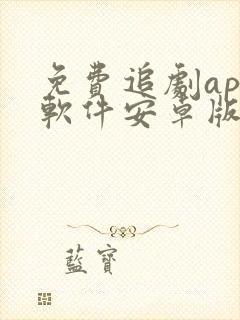 免費追劇ap
軟件安卓版
藍寶